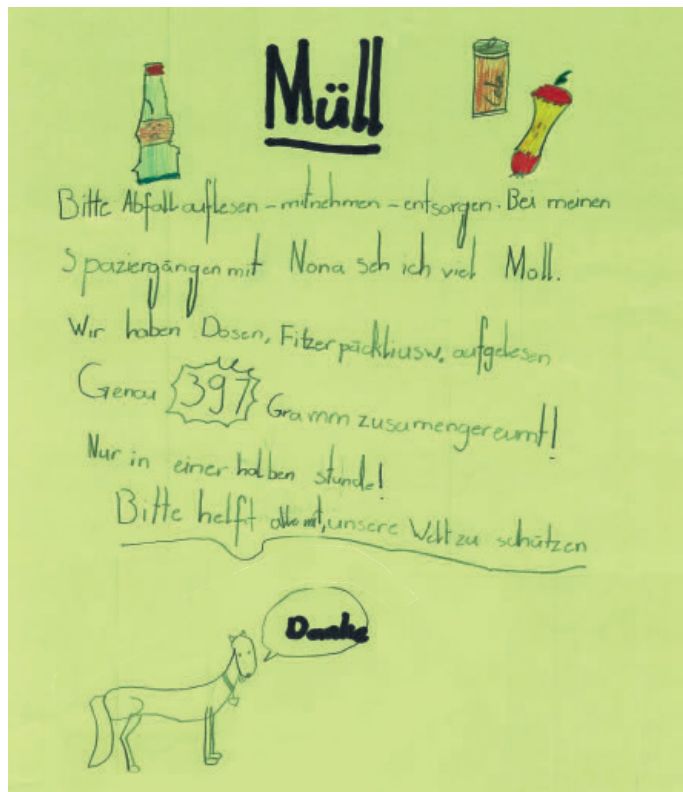 Müll
Cola
Bitte Abfall auflesen – mitnehmen – entsorgen. Bei meinen
Spaziergängen mit Nona seh ich viel Moll.
Wir haben Dosen, Fitzerpäckliusw. aufgelesen
Genau 397 Gramm zusamengereumt!
Nur in einer halben stunde!
Bitte helft alle mit, unsere Welt zu schützen
Danke